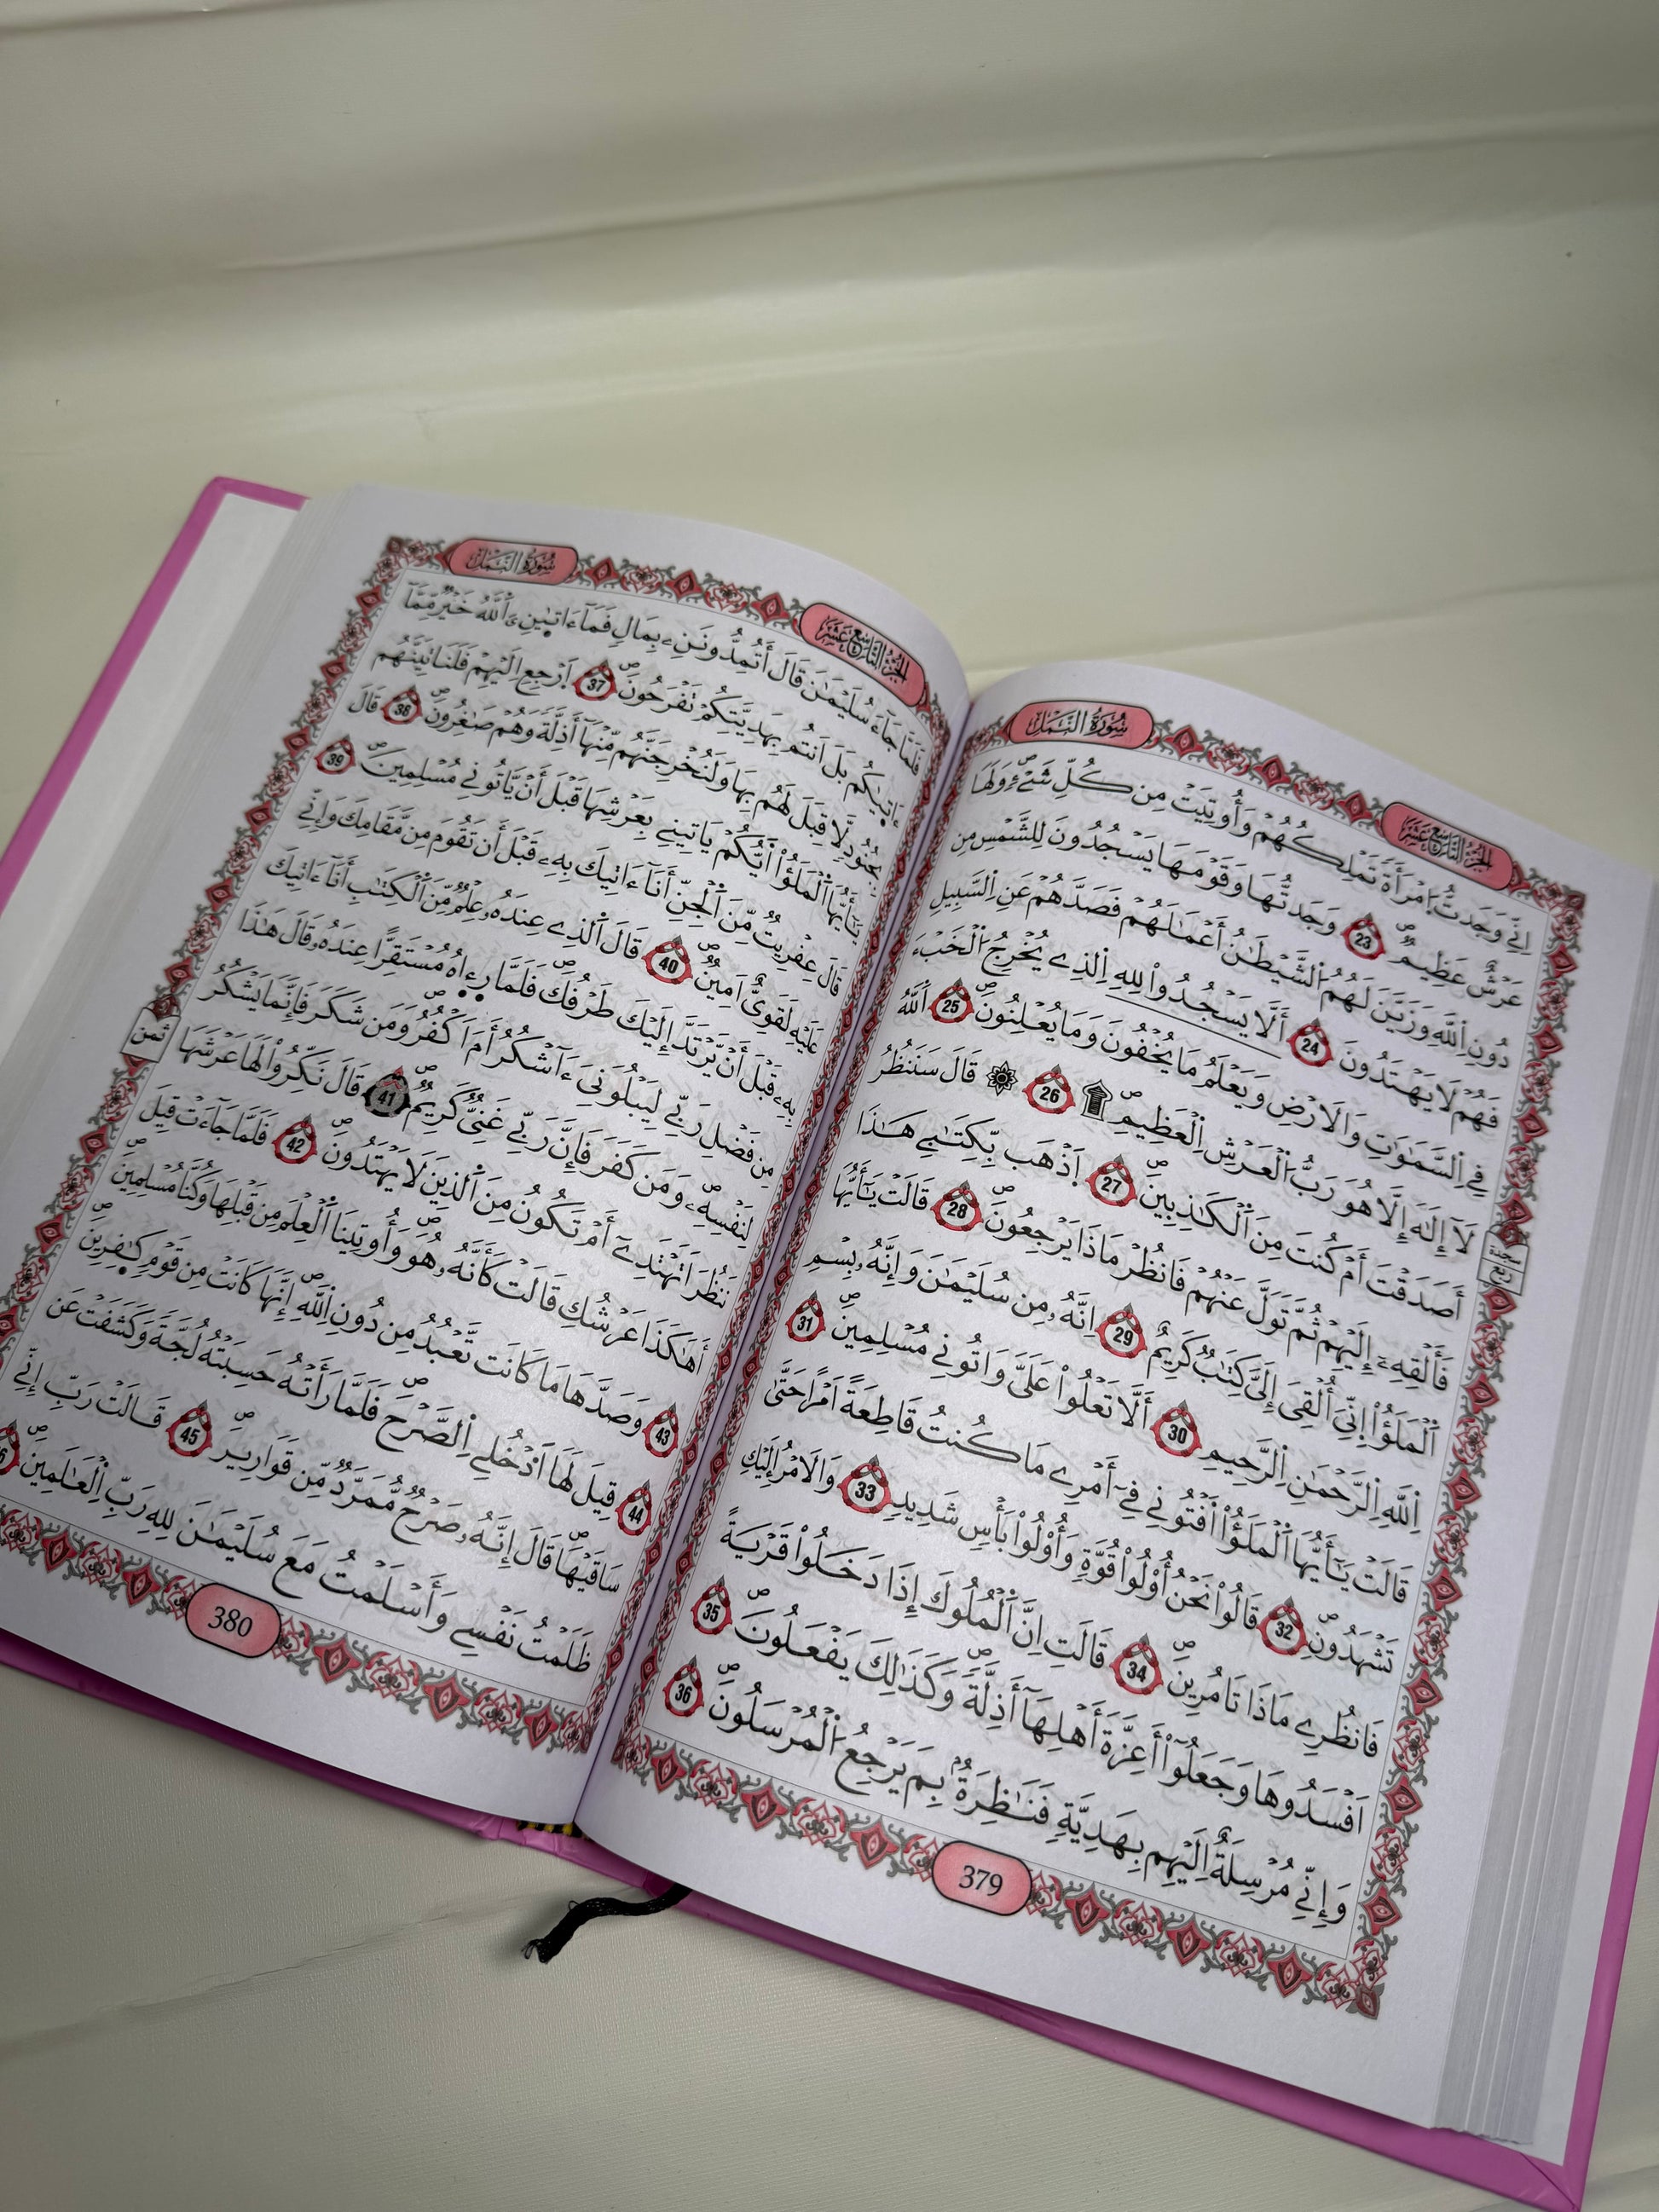 سُورَةُ النَّمْلِ
الجُزْءُ التَّاسِعَ عَشَرَ
اِنِّے وَجَدتُّ اُ۪مْرَأَةٗ تَمْلِكُهُمْ وَأُوتِيَتْ مِن كُلِّ شَےْءٖۖ وَلَهَا
عَرْشٌ عَظِيمٞۖ 23 وَجَدتُّهَا وَقَوْمَهَا يَسْجُدُونَ لِلشَّمْسِ مِن
دُونِ اِ۬للَّهِ وَزَيَّنَ لَهُمُ اُ۬لشَّيْطَٰنُ أَعْمَٰلَهُمْ فَصَدَّهُمْ عَنِ اِ۬لسَّبِيلِ
فَهُمْ لَا يَهْتَدُونَ 24 أَلَّا يَسْجُدُواْ لِلهِ اِ۬لذِے يُخْرِجُ اُ۬لْخَبْءَ
فِے اِ۬لسَّمَٰوَٰتِ وَالَارْضِ وَيَعْلَمُ مَا يُخْفُونَ وَمَا يُعْلِنُونَۖ 25 اَ۬للَّهُ
لَآ إِلَٰهَ إِلَّا هُوَ رَبُّ اُ۬لْعَرْشِ اِ۬لْعَظِيمِۖ 26 قَالَ سَنَنظُرُ
أَصَدَقْتَ أَمْ كُنتَ مِنَ اَ۬لْكَٰذِبِينَۖ 27 اَ۪ذْهَب بِّكِتَٰبِے هَٰذَا
فَأَلْقِهِۦٓ إِلَيْهِمْ ثُمَّ تَوَلَّ عَنْهُمْ فَانظُرْ مَاذَا يَرْجِعُونَۖ 28 قَالَتْ يَٰٓأَيُّهَا
اَ۬لْمَلَؤُاْ اِنِّيَ أُلْقِيَ إِلَيَّ كِتَٰبٞ كَرِيمٌ 29 اِنَّهُۥ مِن سُلَيْمَٰنَ وَإِنَّهُۥ بِسْمِ
اِ۬للَّهِ اِ۬لرَّحْمَٰنِ اِ۬لرَّحِيمِ 30 أَلَّا تَعْلُواْ عَلَيَّ وَاتُونِے مُسْلِمِينَۖ 31
قَالَتْ يَٰٓأَيُّهَا اَ۬لْمَلَؤُاْ اَفْتُونِے فِےٓ أَمْرِے مَا كُنتُ قَاطِعَةً اَمْراً حَتَّىٰ
تَشْهَدُونِۖ 32 قَالُواْ نَحْنُ أُوْلُواْ قُوَّةٖ وَأُوْلُواْ بَأْسٖ شَدِيدٖ 33 وَالَامْرُ إِلَيْكِ
فَانظُرِے مَاذَا تَامُرِينَۖ 34 قَالَتِ اِنَّ اَ۬لْمُلُوكَ إِذَا دَخَلُواْ قَرْيَةً
اَفْسَدُوهَا وَجَعَلُوٓاْ أَعِزَّةَ أَهْلِهَآ أَذِلَّةٗۖ وَكَذَٰلِكَ يَفْعَلُونَۖ 35
وَإِنِّے مُرْسِلَةٌ اِلَيْهِم بِهَدِيَّةٖ فَنَٰظِرَةُۢ بِمَ يَرْجِعُ اُ۬لْمُرْسَلُونَۖ 36
سجدة
ربع
379
سُورَةُ النَّمْلِ
الجُزْءُ التَّاسِعَ عَشَرَ
فَلَمَّا جَآءَ سُلَيْمَٰنَ قَالَ أَتُمِدُّونَنِۦ بِمَالٖ فَمَآ ءَات۪يٰنِۦَ اَ۬للَّهُ خَيْرٞ مِّمَّآ
ءَات۪يٰكُم بَلَ اَنتُم بِهَدِيَّتِكُمْ تَفْرَحُونَۖ 37 اَ۪رْجِعِ اِلَيْهِمْ فَلَنَاتِيَنَّهُم
بِجُنُودٖ لَّا قِبَلَ لَهُم بِهَا وَلَنُخْرِجَنَّهُم مِّنْهَآ أَذِلَّةٗ وَهُمْ صَٰغِرُونَۖ 38 قَالَ
يَٰٓأَيُّهَا اَ۬لْمَلَؤُاْ اَيُّكُمْ يَاتِينِے بِعَرْشِهَا قَبْلَ أَنْ يَّاتُونِے مُسْلِمِينَۖ 39
قَالَ عِفْرِيتٞ مِّنَ اَ۬لْجِنِّ أَنَآ ءَاتِيكَ بِهِۦ قَبْلَ أَن تَقُومَ مِن مَّقَامِكَ وَإِنِّے
عَلَيْهِ لَقَوِيٌّ اَمِينٞۖ 40 قَالَ اَ۬لذِے عِندَهُۥ عِلْمٞ مِّنَ اَ۬لْكِتَٰبِ أَنَآ ءَاتِيكَ
بِهِۦ قَبْلَ أَنْ يَّرْتَدَّ إِلَيْكَ طَرْفُكَۖ فَلَمَّا ر۪ء۪اهُ مُسْتَقِرّاً عِندَهُۥ قَالَ هَٰذَا
مِن فَضْلِ رَبِّے لِيَبْلُوَنِيَ ءَآشْكُرُ أَمَ اَكْفُرُۖ وَمَن شَكَرَ فَإِنَّمَا يَشْكُرُ
لِنَفْسِهِۦۖ وَمَن كَفَرَ فَإِنَّ رَبِّے غَنِيّٞ كَرِيمٞۖ 41 قَالَ نَكِّرُواْ لَهَا عَرْشَهَا
نَنظُرَ اَتَهْتَدِےٓ أَمْ تَكُونُ مِنَ اَ۬لذِينَ لَا يَهْتَدُونَۖ 42 فَلَمَّا جَآءَتْ قِيلَ
أَهَٰكَذَا عَرْشُكِ قَالَتْ كَأَنَّهُۥ هُوَۖ وَأُوتِينَا اَ۬لْعِلْمَ مِن قَبْلِهَا وَكُنَّا مُسْلِمِينَۖ
43 وَصَدَّهَا مَا كَانَت تَّعْبُدُ مِن دُونِ اِ۬للَّهِۖ إِنَّهَا كَانَتْ مِن قَوْمٖ كٰ۪فِرِينَۖ
44 قِيلَ لَهَا اَ۟دْخُلِے اِ۬لصَّرْحَۖ فَلَمَّا رَأَتْهُ حَسِبَتْهُ لُجَّةٗ وَكَشَفَتْ عَن
سَاقَيْهَاۖ قَالَ إِنَّهُۥ صَرْحٞ مُّمَرَّدٞ مِّن قَوَارِيرَۖ 45 قَالَتْ رَبِّ إِنِّے
ظَلَمْتُ نَفْسِے وَأَسْلَمْتُ مَعَ سُلَيْمَٰنَ لِلهِ رَبِّ اِ۬لْعَٰلَمِينَۖ
ثمن
380